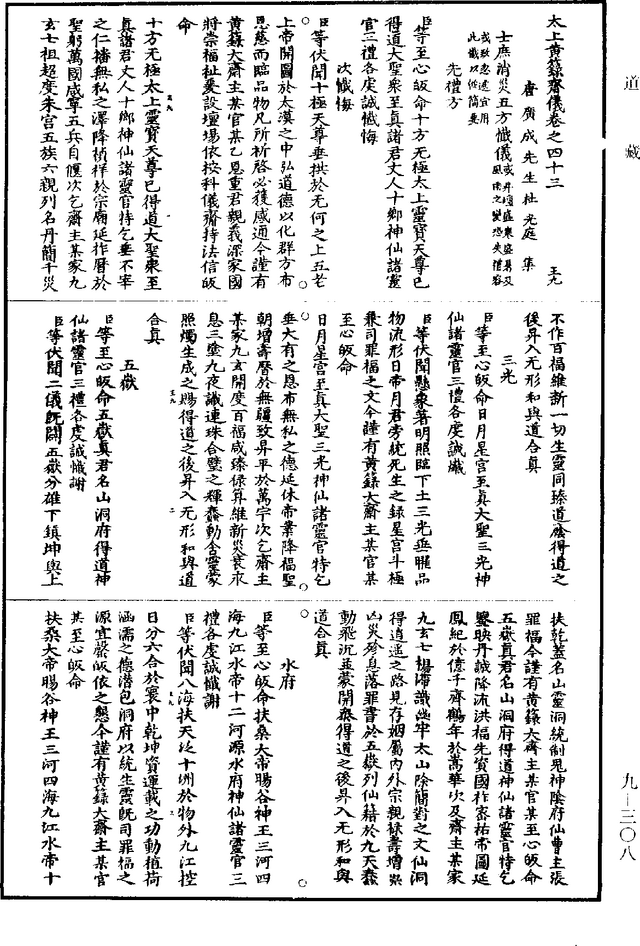 道藏
太上黃籙齋儀卷之四十三
唐廣成先生杜光庭集
士庶消災五方懺儀
先禮方
臣等至心皈命十方无極太上靈寶天尊已
得道大聖衆至真諸君丈人十鄉神仙諸靈
官三禮各虔誠懺悔
次懺悔
臣等伏聞十極天尊垂拱於无何之上五老
上帝開圖於太漠之中弘道德以化群方布
恩慈而臨品物凡所祈啓必獲感通今謹有
黃籙大齋主某官某乙恩重君親義深家國
將崇福祉爰設壇場依按科儀齋持法信皈
命
十方无極太上靈寶天尊已得道大聖衆至
真諸君丈人十鄉神仙諸靈官特乞垂不宰
之仁播無私之澤降禎祥於宗廟延祚曆於
聖躬萬國咸寧五兵自偃次乞齋主某家九
玄七祖超度朱宮五族六親列名丹簡千災
不作百福維新一切生靈同臻道蔭得道之
後昇入无形和與道合真
三光
臣等至心皈命日月星宮至真大聖三光神
仙諸靈官三禮各虔誠懺
臣等伏聞懸象著明照臨下土三光垂耀品
物流形日帝月君旁統死生之録星宮斗極
兼司罪福之文今謹有黃籙大齋主某官某
至心皈命
日月星宮至真大聖三光神仙諸靈官特乞
垂大有之恩布無私之德延休帝業降福聖
朝增壽曆於無疆致昇平於萬宇次乞齋主
某家九玄開度百福咸臻保算維新災衰永
息三塗九夜識連珠合璧之輝蠢動含靈蒙
照燭生成之賜得道之後昇入无形和與道
合真
五嶽
臣等至心皈命五嶽真君名山洞府得道神
仙諸靈官三禮各虔誠懺謝
臣等伏聞二儀旣闢五嶽分雄下鎮坤輿上
扶乾蓋名山靈洞統制鬼神陰府仙曹主張
罪福今謹有黃籙大齋主某官某至心皈命
五嶽真君名山洞府得道神仙諸靈官特乞
鑒映丹誠降流洪福先資國祚家祐帝圖延
鳳紀於億千齊鶴年於嵩華次及齋主某家
九玄七祖滯識幽牢太山除簡對之文仙洞
得逍遥之路見存姻屬内外宗親祿壽增榮
凶災殄息落罪書於五嶽列仙藉於九天蠢
動飛沉並蒙開泰得道之後昇入无形和與
道合真
水府
臣等至心皈命扶桑大帝暘谷神王三河四
海九江水帝十二河源水府神仙諸靈官三
禮各虔誠懺謝
臣等伏聞八海扶天泛十洲於物外九江控
日分六合於寰中乾坤資運載之功動植荷
涵濡之德潜包洞府以統生靈旣司罪福之
源宜罄皈依之懇今謹有黃籙大齋主某官
某至心皈命
扶桑大帝暘谷神王三河四海九江水帝十
九—三〇八